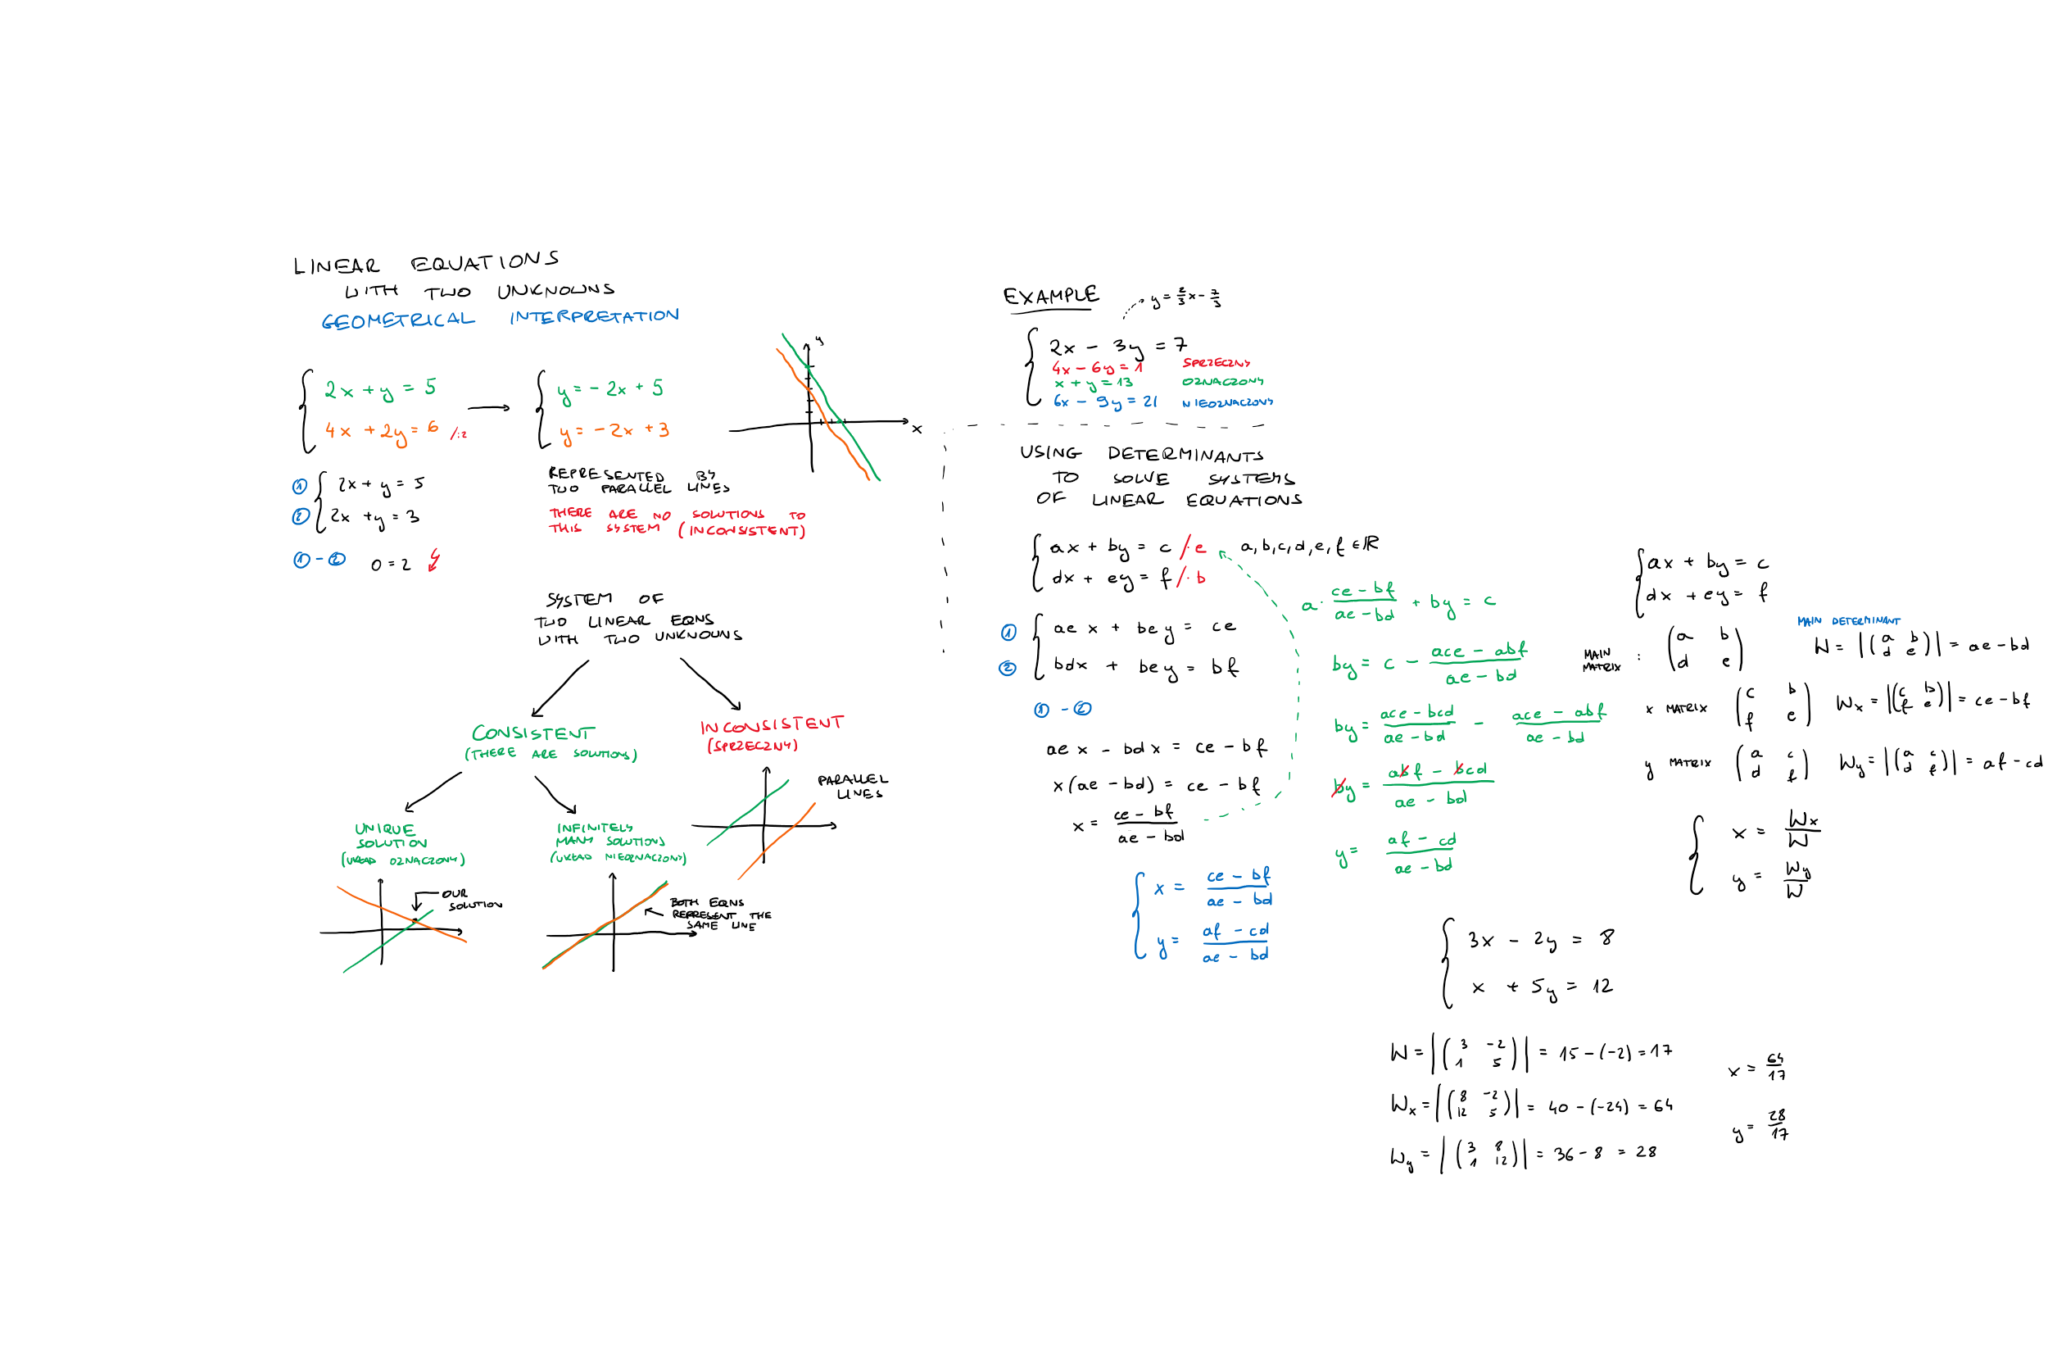 LINEAR EQUATIONS
WITH TWO UNKNOWNS
GEOMETRICAL INTERPRETATION
2x + y = 5
4x + 2y = 6 /:2
y = -2x + 5
y = -2x + 3
y
x
① 2x + y = 5
② 2x + y = 3
① - ② 0 = 2
REPRESENTED BY
TWO PARALLEL LINES
THERE ARE NO SOLUTIONS TO
THIS SYSTEM (INCONSISTENT)
SYSTEM OF
TWO LINEAR EQNS
WITH TWO UNKNOWNS
CONSISTENT
(THERE ARE SOLUTIONS)
INCONSISTENT
(SPRZECZNY)
PARALLEL
LINES
UNIQUE
SOLUTION
(UKŁAD OZNACZONY)
OUR
SOLUTION
INFINITELY
MANY SOLUTIONS
(UKŁAD NIEOZNACZONY)
BOTH EQNS
REPRESENT THE
SAME LINE
EXAMPLE
y = 2/3 x - 7/3
2x - 3y = 7
4x - 6y = 1 SPRZECZNY
x + y = 13 OZNACZONY
6x - 9y = 21 NIEOZNACZONY
USING DETERMINANTS
TO SOLVE SYSTEMS
OF LINEAR EQUATIONS
ax + by = c /·e
dx + ey = f /·b
a, b, c, d, e, f ∈ ℝ
① aex + bey = ce
② bdx + bey = bf
① - ②
aex - bdx = ce - bf
x(ae - bd) = ce - bf
x = (ce - bf)/(ae - bd)
x = (ce - bf)/(ae - bd)
y = (af - cd)/(ae - bd)
a · (ce - bf)/(ae - bd) + by = c
by = c - (ace - abf)/(ae - bd)
by = (ace - bcd)/(ae - bd) - (ace - abf)/(ae - bd)
by = (abf - bcd)/(ae - bd)
y = (af - cd)/(ae - bd)
ax + by = c
dx + ey = f
MAIN DETERMINANT
MAIN MATRIX : (a b; d e) W = |(a b; d e)| = ae - bd
x MATRIX (c b; f e) Wx = |(c b; f e)| = ce - bf
y MATRIX (a c; d f) Wy = |(a c; d f)| = af - cd
x = Wx/W
y = Wy/W
3x - 2y = 8
x + 5y = 12
W = |(3 -2; 1 5)| = 15 - (-2) = 17
Wx = |(8 -2; 12 5)| = 40 - (-24) = 64
Wy = |(3 8; 1 12)| = 36 - 8 = 28
x = 64/17
y = 28/17